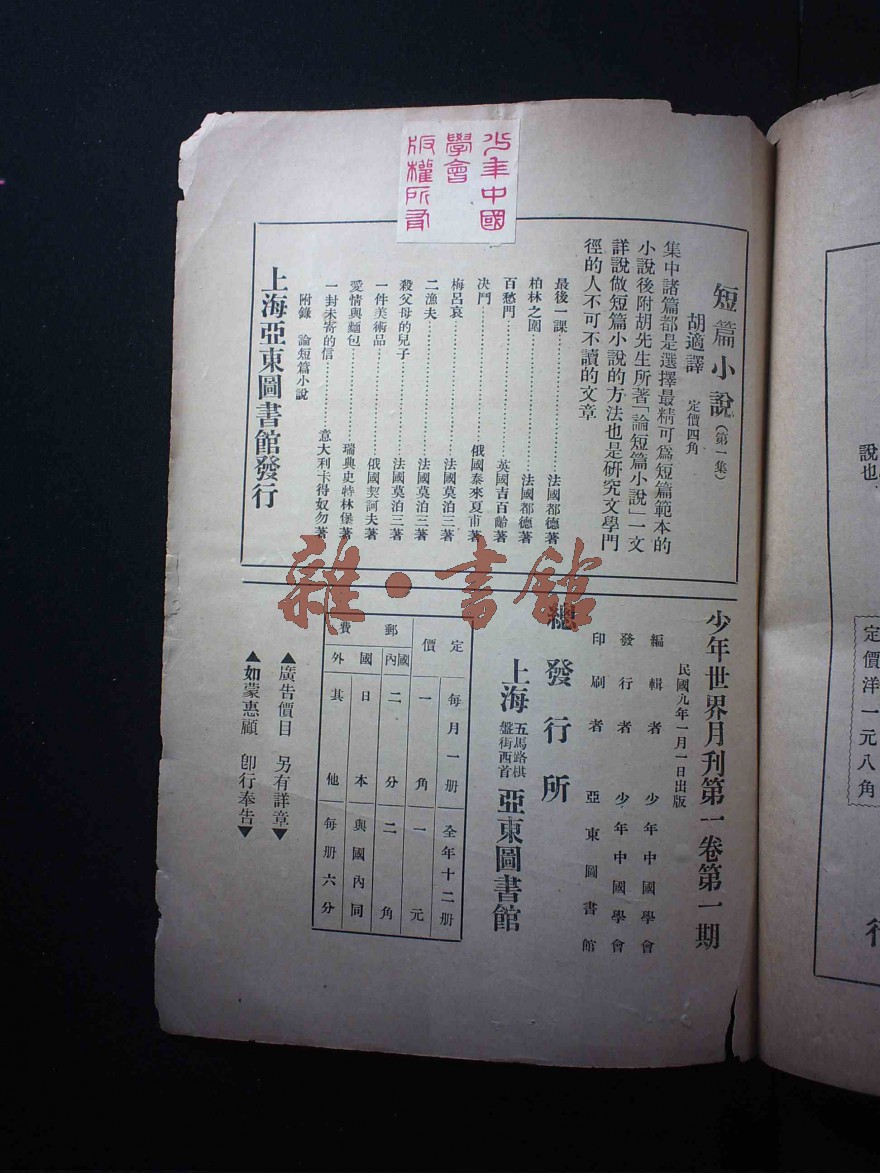 少年中國
學會
版權所有
短篇小說(第一集)
胡適譯 定價四角
集中諸篇都是選擇最精可爲短篇範本的
小說後附胡先生所著「論短篇小說」一文
詳說做短篇小說的方法也是研究文學門
徑的人不可不讀的文章
最後一課…………法國都德著
柏林之圍…………法國都德著
百愁門…………英國吉百齡著
決鬥…………俄國泰來夏甫著
梅呂哀…………法國莫泊三著
二漁夫…………法國莫泊三著
殺父母的兒子…………法國莫泊三著
一件美術品…………俄國契訶夫著
愛情與麵包…………瑞典史特林堡著
一封未寄的信…………意大利卡得奴勿著
附錄 論短篇小說
上海亞東圖書館發行
少年世界月刊第一卷第一期
民國九年一月一日出版
編輯者 少年中國學會
發行者 少年中國學會
印刷者 亞東圖書館
總發行所
上海 五馬路棋盤街西首 亞東圖書館
定 每月一册 全年十二册
價 一角 一元
郵 國內 二分 二角
費 國 日本 與國內同
外 其他 每册六分
▲廣告價目 另有詳章▼
▲如蒙惠顧 卽行奉告▼
雜·書館
說也
定價洋一元八角
行